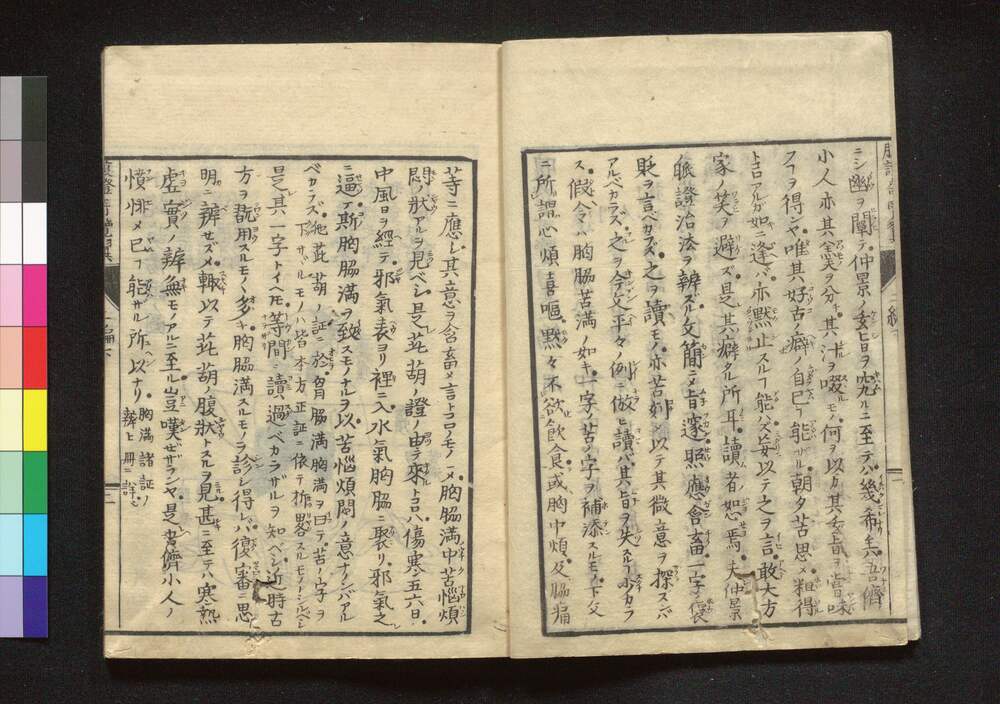 ニシ幽ヲ闡テ仲景ノ玄旨ヲ究ルニ至テハ幾希矣吾儕
小人亦其羹ヲ分チ其汁ヲ啜ルモノ何ヲ以カ其玄旨ヲ嘗味
スルヿヲ得ンヤ唯其好古ノ癖ノ自已ヿ能ザル朝夕苦思メ粗得
トコロアルガ如ニ逢バ亦黙止スルヿ能ハズ妄以テ之ヲ言敢大方
家ノ笑ヲ避ズ是其癖タル所耳讀者恕焉夫仲景
氏證治法ヲ辨ズル文簡ニメ皆邃照應含畜一字ノ褒
貶ヲ言ベカラズ之ヲ讀モノ亦苦 以テ其微意ヲ探ズバ
アルベカラズ之ヲ今文平々ノ例ニ倣ヒ讀バ其旨ヲ失スルヿ少カラ
ス假令バ胸脇苦満ノ如キ一字ノ苦ノ字ヲ補添スルモノハ下文
ニ所謂心煩喜嘔黙々不欲飲食或胸中煩及脇痛
等ニ應ジ其意ヲ含畜メ言トコロノモノニメ胸脇満中苦惱煩
悶ノ状アルヲ見ベシ是茈胡ノ證ノ由テ來トコロハ傷寒ノ五六日
中風日ヲ經テ邪氣表ヨリ裡ニ入水氣胸脇ニ聚リ邪氣之
ニ逼テ斯胸脇満ヲ致スモノナルヲ以苦惱煩悶ノ意ナクンバアル
ベカラズ他茈胡ノ証ニ於胷脇満胸満ヲ曰テ苦ノ字ヲ
下サヾルモノハ皆本方正証ニ依テ 畧スルモノトシルベシ
是其一字トイヘ𪜈等間ニ讀過ベカラザルヲ知ベシ近時古
方ヲ翫用スルモノハ多ク胸脇満スルモノヲ診シ得レバ復審ニ思
明ニ辨ゼズメ輙以テ茈胡ノ腹状トスルヲ見甚ニ至テハ寒熱
虚實ノ辨無モノアルニ至ル豈嘆ゼザランヤ是吾儕小人ノ
憤悱メ已ヿ能ザル所以ナリ
胸満諸証ノ
辨ヒ冊ニ詳也